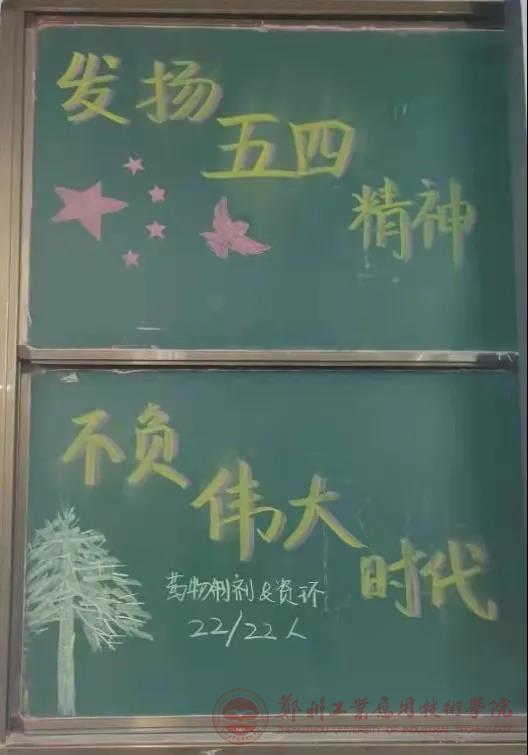 发扬
五四
精神
不负
伟大
时代
药物制剂&资环
22/22人
郑州工业应用技术学院
ZHENGZHOU UNIVERSITY OF INDUSTRIAL TECHNOLOGY